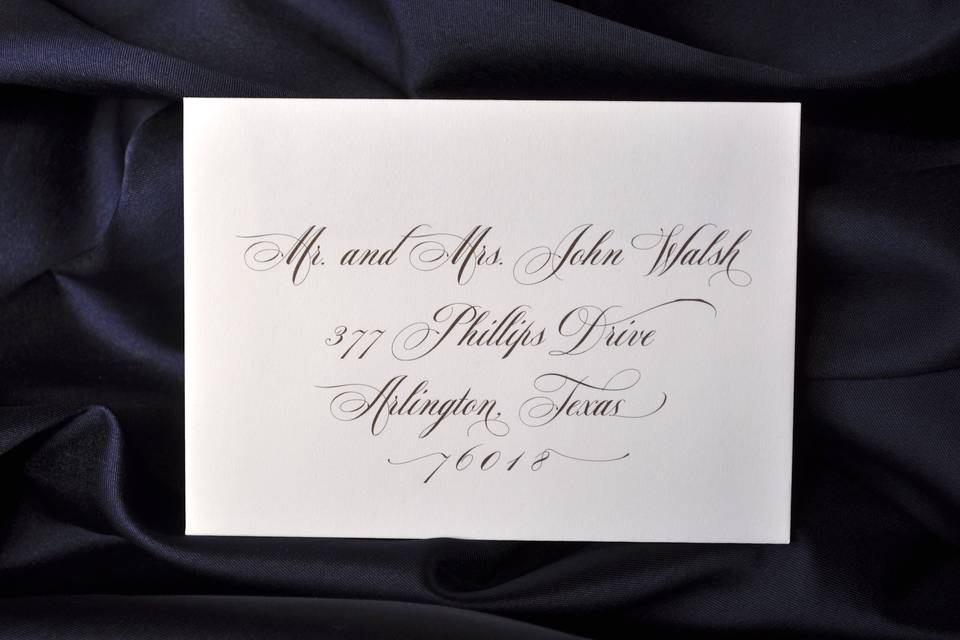 Mr. and Mrs. John Walsh
377 Phillips Drive
Arlington, Texas
76018